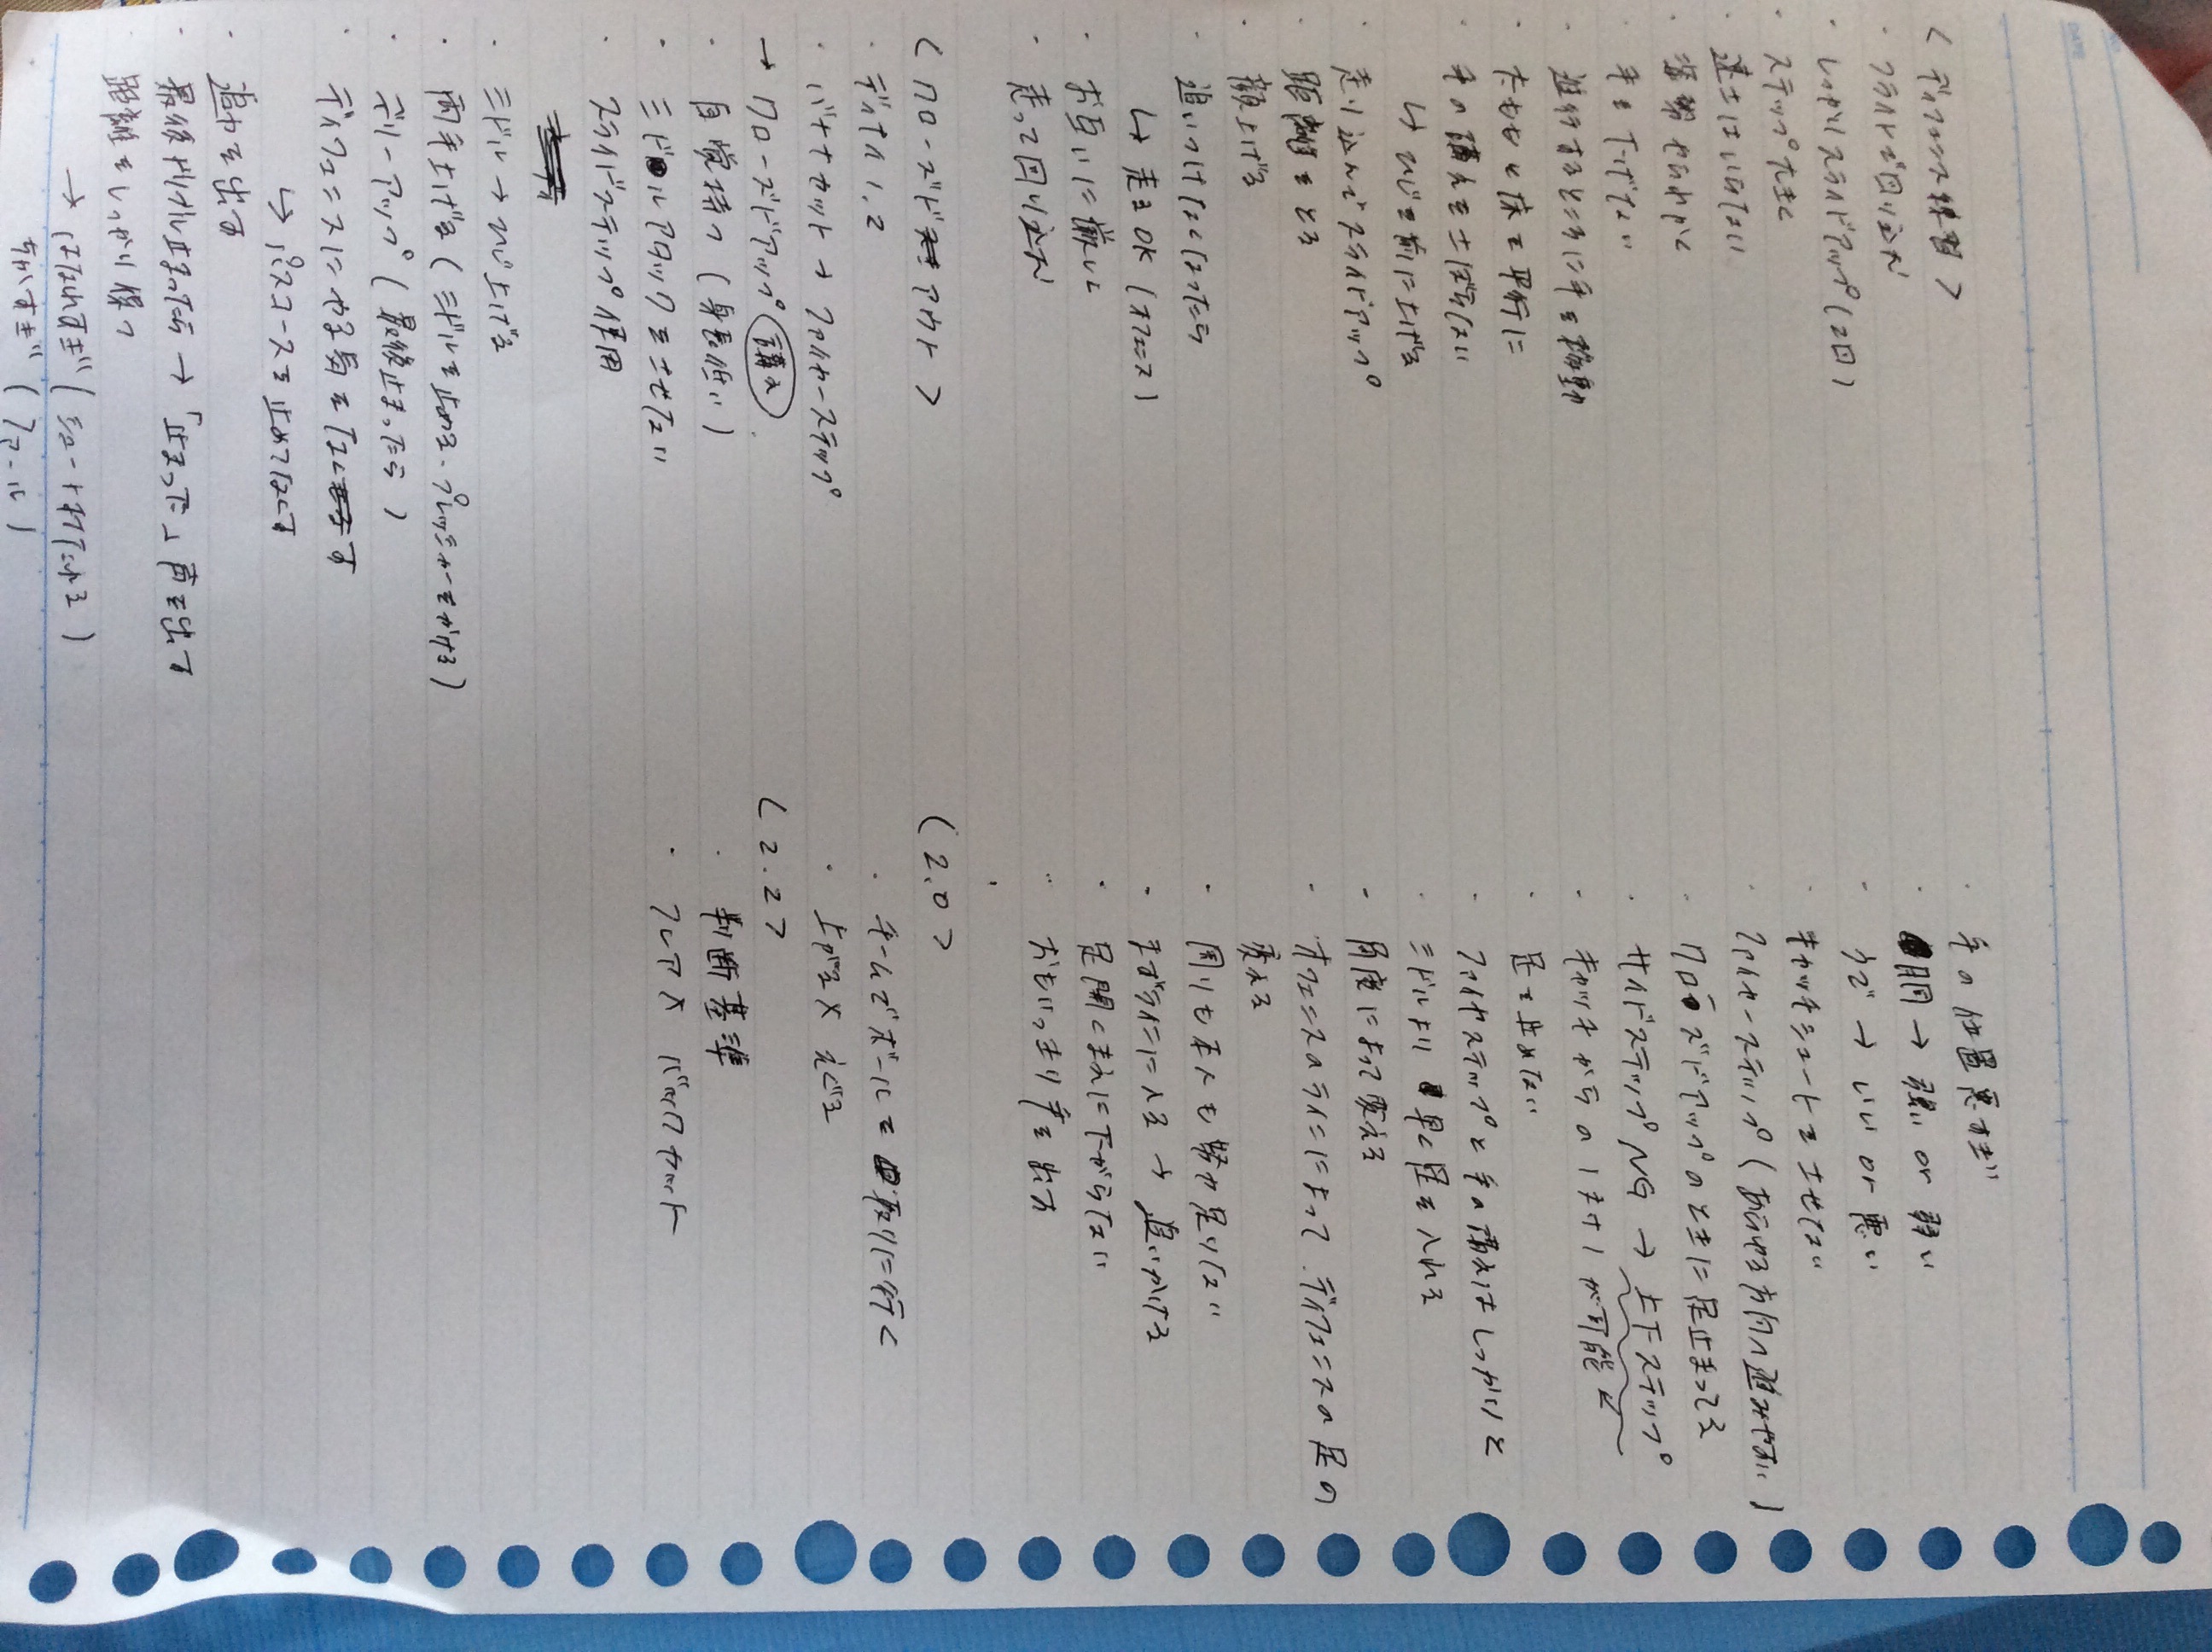 <ディフェンス練習>
・スライドで回り込む
・しっかりスライドアップ(2回)
・ステップ大きく
・走士はいらない
・姿勢変わらない
・手を下げない
・進行するところに手を移動
・太ももと床を平行に
・手の構えをさぼらない
↳ ひじを前に上げる
・走り込んでスライドアップ
・距離をとる
・顔上げる
・追いつけなくなったら
↳ 走るOK(オフェンス)
・お互いに厳しく
・走って回り込む
<クローズドアウト>
・ディナイ1,2
・バナナカット→ファイヤーステップ
→クローズドアップ 構え
・自覚持つ(身長低い)
・ミドルアタックをさせない
・スライドステップ使用
・ミドル→ひじ上げる
・両手上げる(ミドルを止める・プレッシャーをかける)
・デリーアップ(最後止まったら)
・ディフェンスにやる事をなくす
↳パスコースを止めてなくす
・迫力を出す
・最後ドリブル止まったら→「止まった」声を出して
・距離をしっかり保つ
→はなれすぎ(シュート打たれる)
ちかすぎ(ファール)
・手の位置悪すぎ
・胴→強い or 弱い
・うで→いい or 悪い
・キャッチシュートをさせない
・ファイヤーステップ(あらゆる方向へ進ませない)
・クローズドアップのときに足止まってる
・サイドステップNG→上下ステップ
・キャッチからの1対1が可能
・足を止めない
・ファイヤステップと手の構えはしっかりと
・ミドルより早く足を入れる
・角度によって変える
・オフェンスのラインによって、ディフェンスの足の
変える
・周りも本人も努力足りない
・まがラインに入る→追いかける
・足閉じまえに下がらない
・おもいっきり手を出す
<2.0>
・チームでボールを取りに行く
・上がる×とびる
<2.2>
・判断基準
・フレア× バックカット